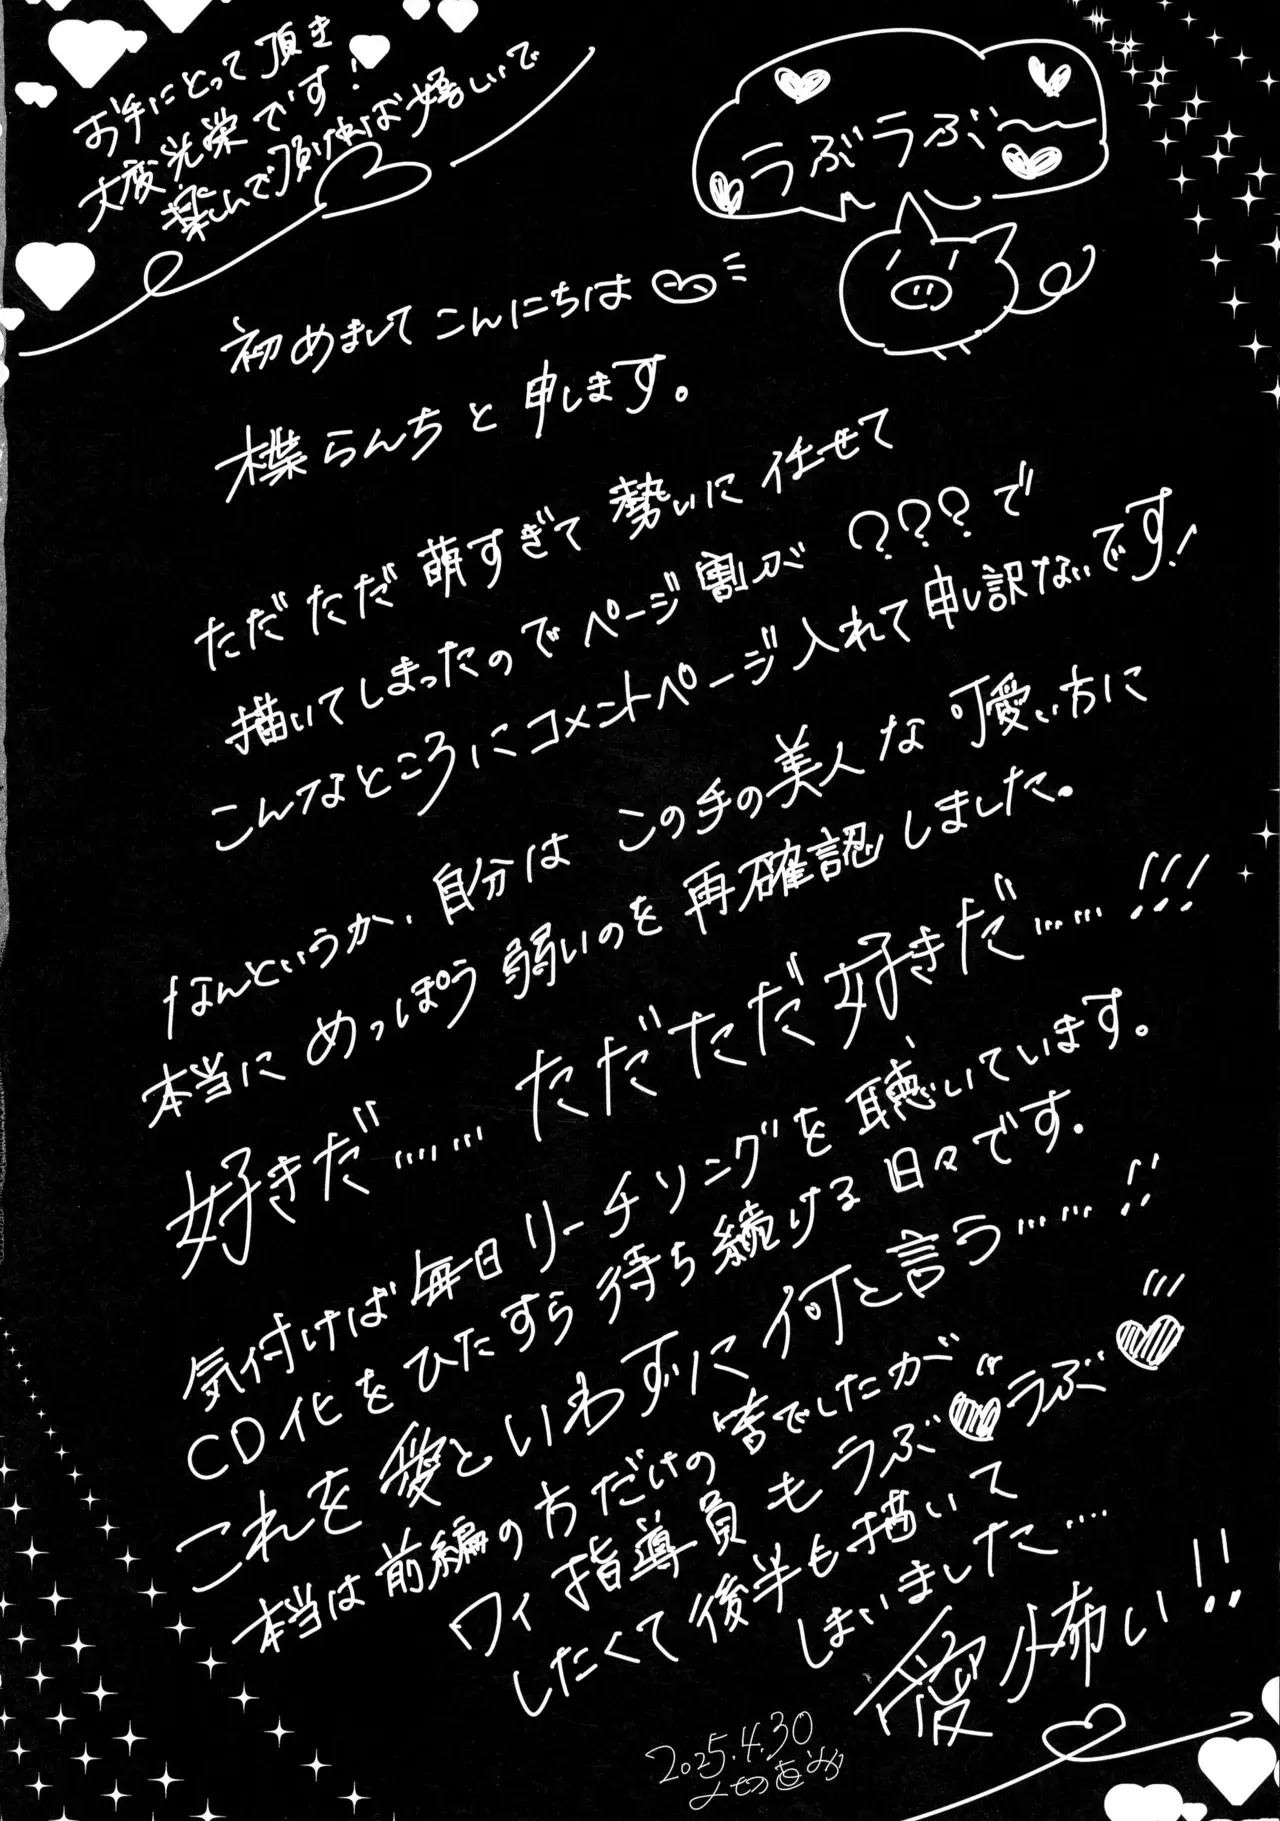 お手にとって頂き
大変光栄です!
楽しんで頂ければ嬉しいで
ラぶラぶ〜
初めましてこんにちは
楪らんちと申します。
ただただ萌すぎて勢いに任せて
描いてしまったのでページ割が???で
こんなところにコメントページ入れて申し訳ないです!
なんというか、自分はこの手の美人な可愛い方に
本当にめっぽう弱いのを再確認しました。
好きだ…… ただただ好きだ……!!!
気付けば毎日リーチソングを聴いています。
CD化をひたすら待ち続ける日々です。
これを愛といわずに何と言う……!!
本当は前編の方だけの筈でしたが
ワイ指導員もラぶ♥ラぶ♥
したくて後半も描いて
しまいました……
愛怖い!!
2025.4.30